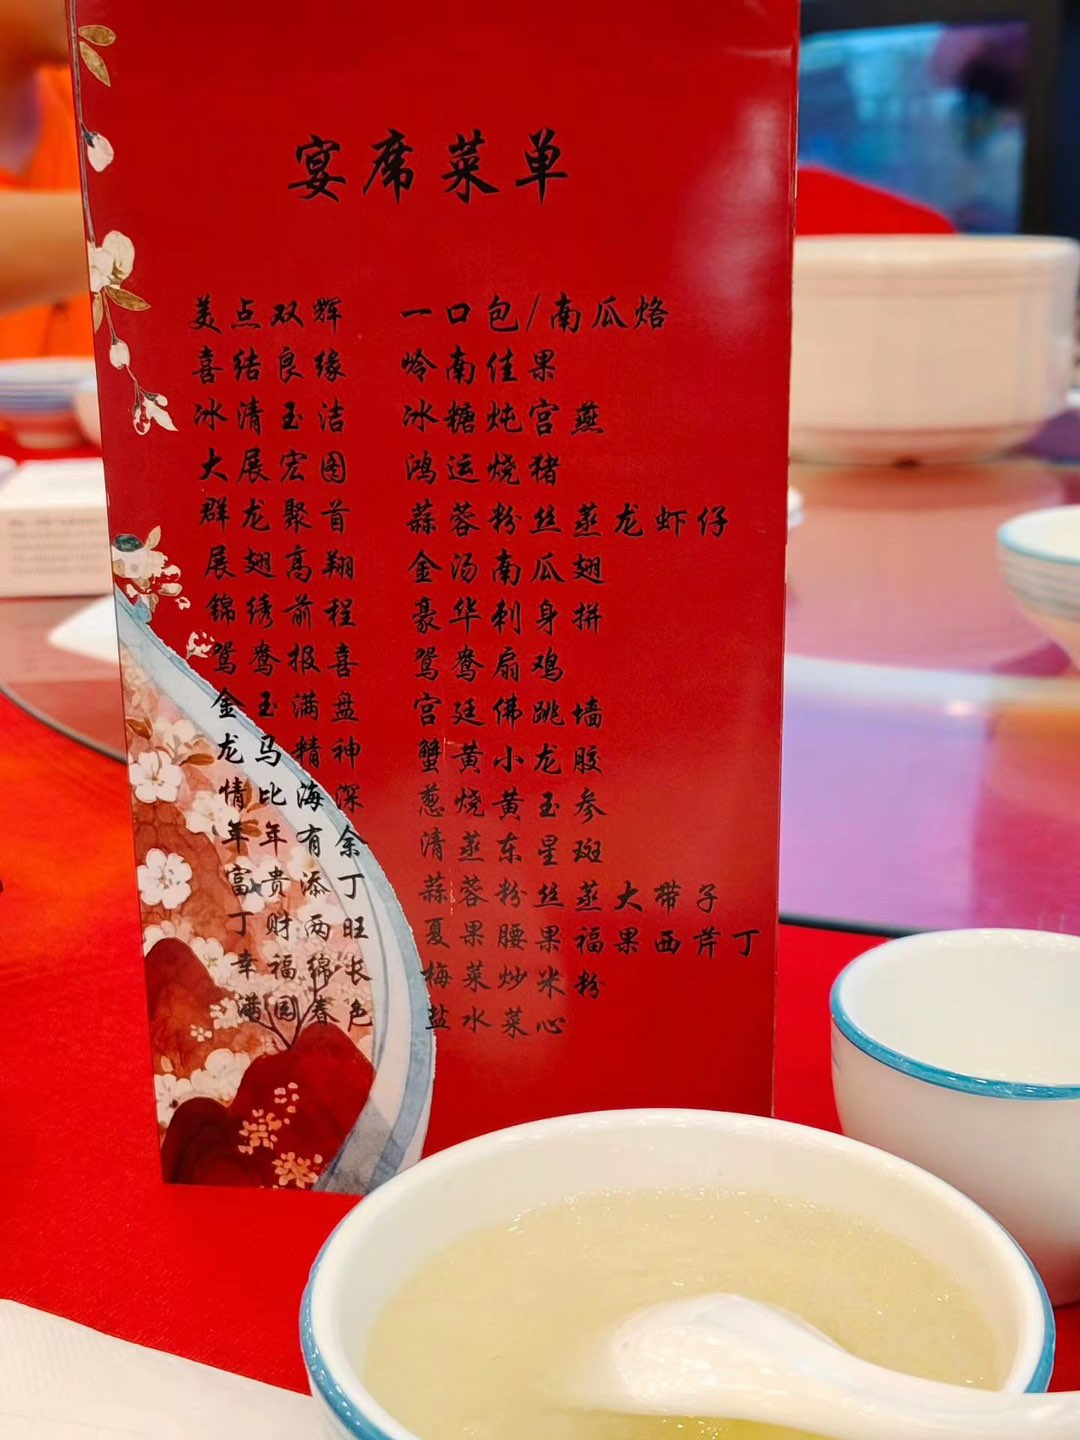 宴席菜单
美点双辉 一口包/南瓜烙
喜结良缘 岭南佳果
冰清玉洁 冰糖炖宫燕
大展宏图 鸿运烧猪
群龙聚首 蒜蓉粉丝蒸龙虾仔
展翅高翔 金汤南瓜翅
锦绣前程 豪华刺身拼
鸳鸯报喜 鸳鸯扇鸡
金玉满盘 宫廷佛跳墙
龙马精神 蟹黄小龙胶
情比海深 葱烧黄玉参
年年有余 清蒸东星斑
富贵添丁 蒜蓉粉丝蒸大带子
丁财两旺 夏果腰果福果西芹丁
幸福绵长 梅菜炒米粉
满园春色 盐水菜心